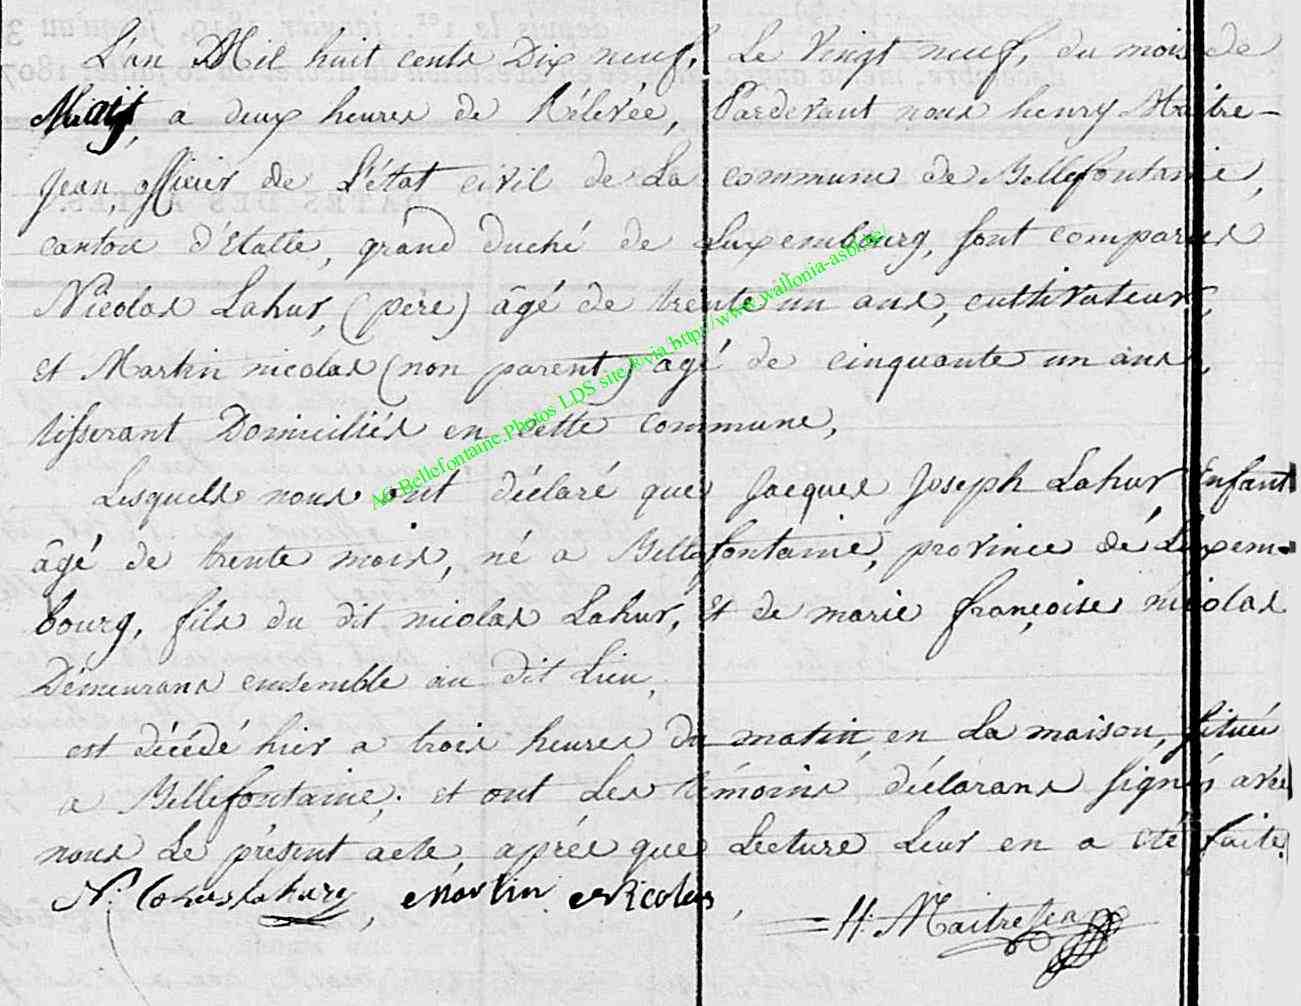 L'an Mil huit cents Dix neuf, Le vingt neuf, du mois de
à deux heures de Rélévée, Pardevant nous henry Maitre-
Jean, officier de L'état civil de La commune de Bellefontaine,
canton d'Etalle, grand duché de Luxembourg, sont comparus
Nicolas Lahur, (père) âgé de trente un ans, cultivateur,
et Martin nicolas (non parent) âgé de cinquante un ans,
tisserant Domiciliés en cette commune,
Lesquels nous ont déclaré que Jacques Joseph Lahur Enfant
âgé de trente mois, né a Bellefontaine, province de Luxem-
bourg, fils du dit nicolas Lahur, et de marie françoise nicolas
Démeurans ensemble au dit Lieu,
est décédé hier a trois heures du matin, en La maison, située
a Bellefontaine, et ont Les témoins déclarans signés avec
nous Le présent acte, après que Lecture Leur en a été faite.
Martin Nicolas, H. MaitreJean
AG Bellefontaine.Photos LDS site & via http://www.wallonia-asbl.be/